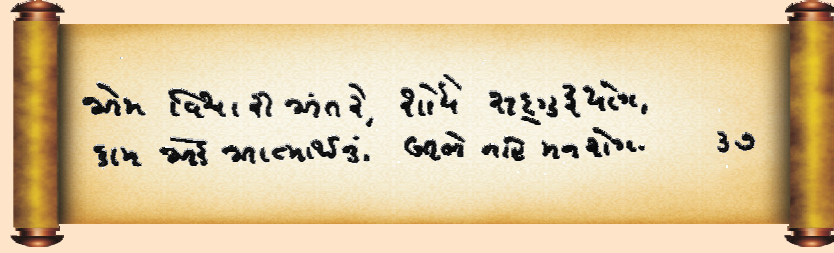 એમ વિચારી અંતરે, શોધે સદ્ગુરુ યોગ,
કામ એક આત્માર્થનું, બીજો નહિ મનરોગ. ૩૭